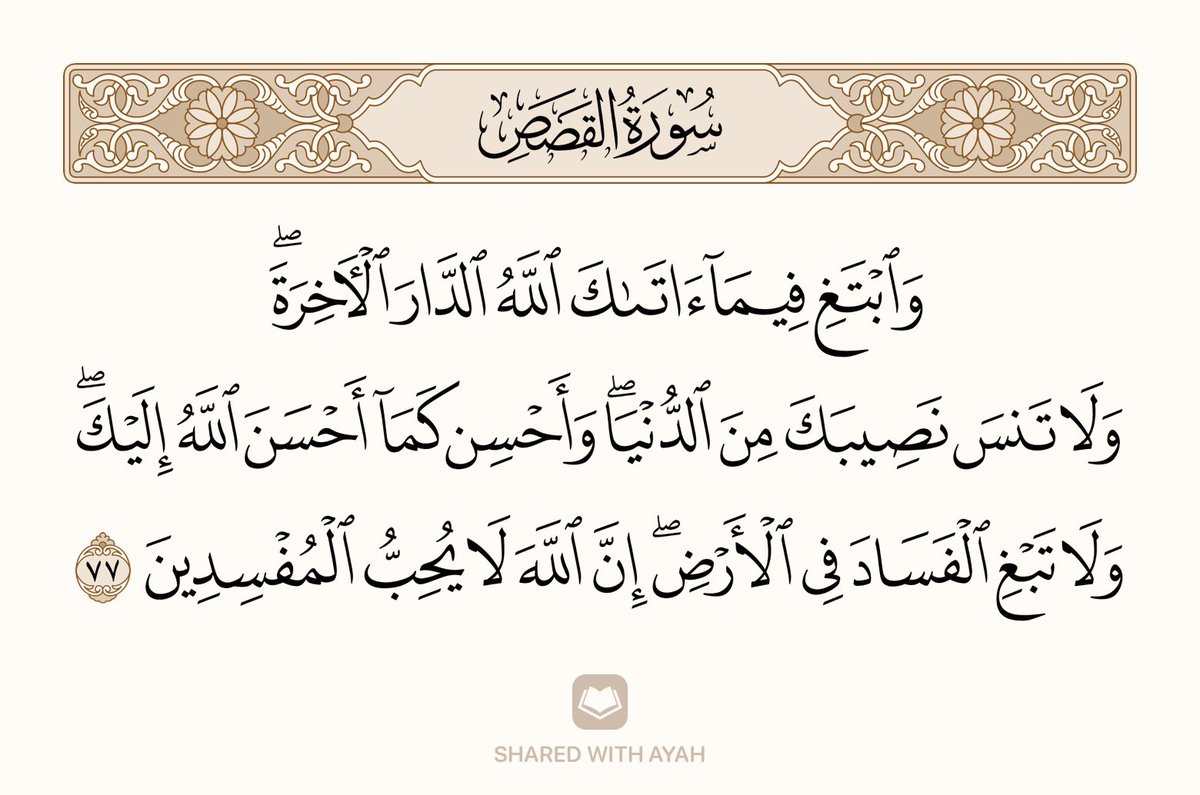 سُورَةُ القَصَصِ
وَٱبۡتَغِ فِيمَآ ءَاتَىٰكَ ٱللَّهُ ٱلدَّارَ ٱلۡأٓخِرَةَۖ
وَلَا تَنسَ نَصِيبَكَ مِنَ ٱلدُّنۡيَاۖ وَأَحۡسِن كَمَآ أَحۡسَنَ ٱللَّهُ إِلَيۡكَۖ
وَلَا تَبۡغِ ٱلۡفَسَادَ فِي ٱلۡأَرۡضِۖ إِنَّ ٱللَّهَ لَا يُحِبُّ ٱلۡمُفۡسِدِينَ ٧٧
SHARED WITH AYAH